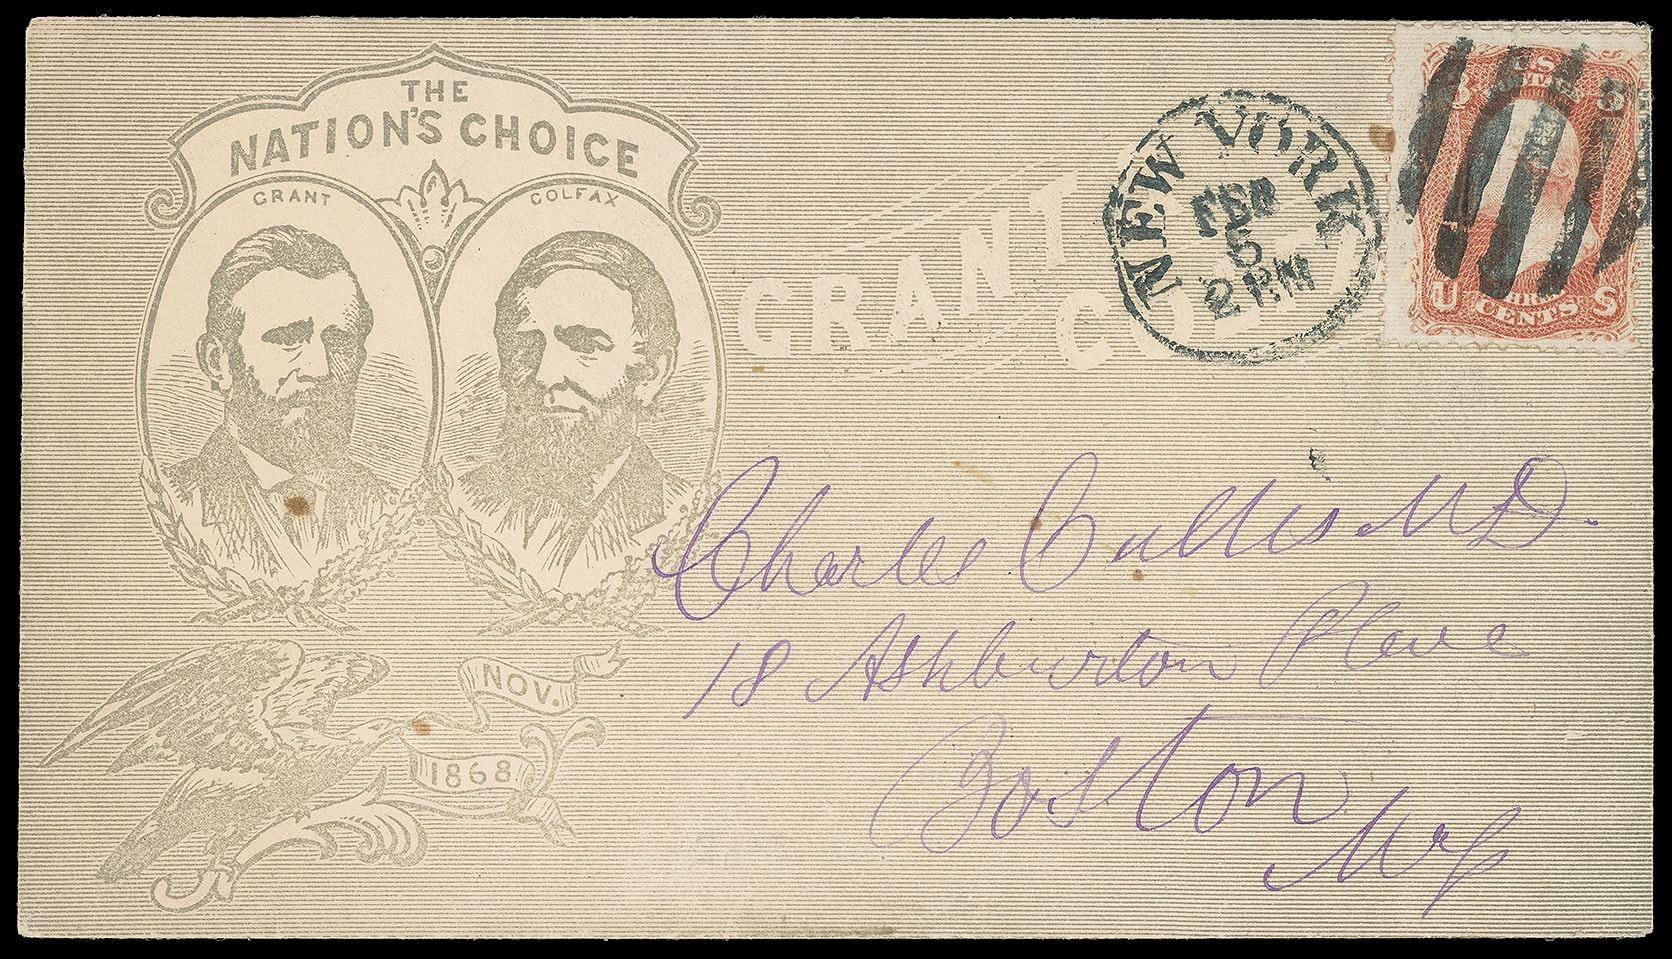 THE
NATION'S CHOICE
GRANT
COLFAX
GRANT
NEW YORK
FEB
5
2 PM
U.S.
POSTAGE
3 3
U S
CENTS
Charles Cullis M.D.
18 Ashburton Place
Boston
NOV.
1868